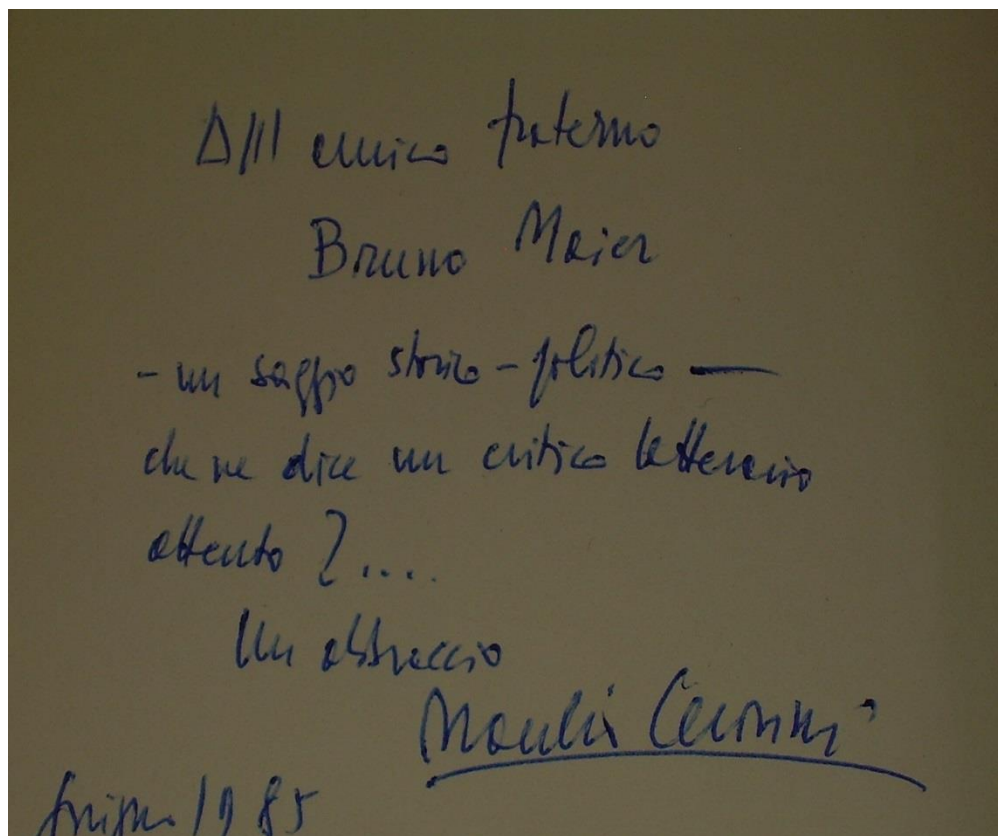 All amico fraterno
Bruno Maier
- un saggio storico-politico —
che ne dice un critico letterario
attento ?....
Un abbraccio
Manlio Cecovini
giugno 1985